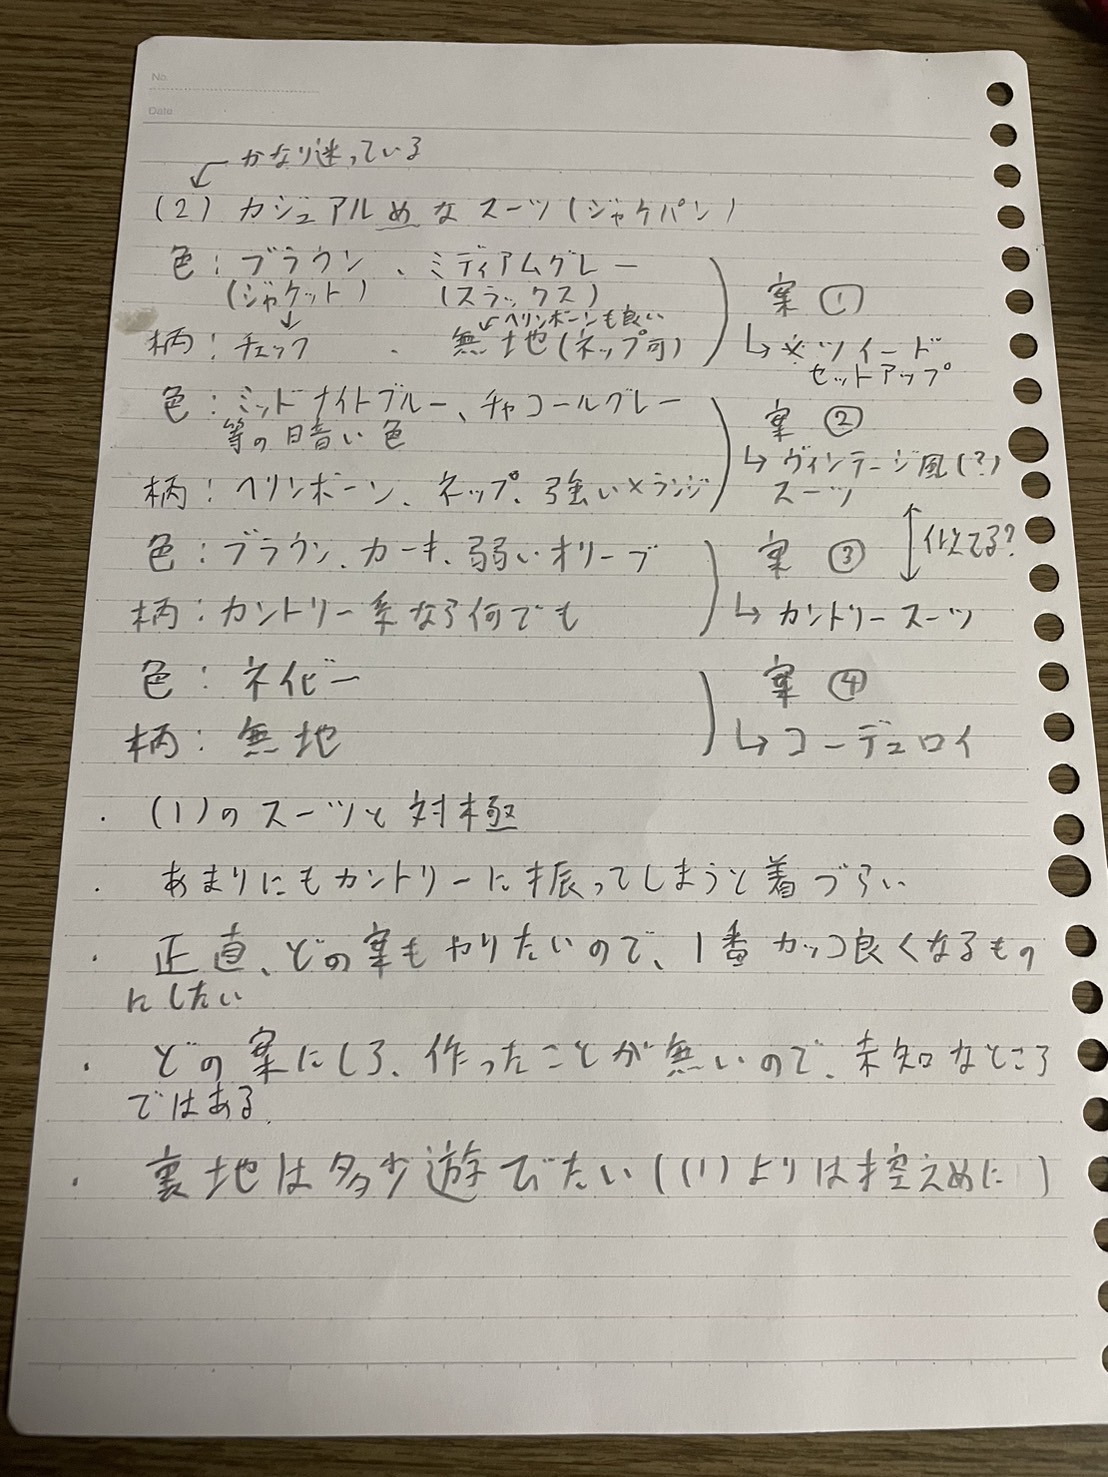 No.
Date
かなり迷っている
(2) カジュアルめなスーツ(ジャケパン)
色：ブラウン、ミディアムグレー
(ジャケット) (スラックス)
ヘリンボーンも良い
柄：チェック 、無地(ネップ可)
案①
↳ ツイード
セットアップ
色：ミッドナイトブルー、チャコールグレー
等の暗い色
柄：ヘリンボーン、ネップ、強いメランジ
案②
↳ ヴィンテージ風(?)
スーツ
似てる?
色：ブラウン、カーキ、弱いオリーブ
柄：カントリー系なら何でも
案③
↳ カントリースーツ
色：ネイビー
柄：無地
案④
↳ コーデュロイ
・(1)のスーツと対極
・あまりにもカントリーに振ってしまうと着づらい
・正直、どの案もやりたいので、1番カッコ良くなるもの
にしたい
・どの案にしろ、作ったことが無いので、未知なところ
ではある。
・裏地は多少遊びたい((1)よりは控えめに)